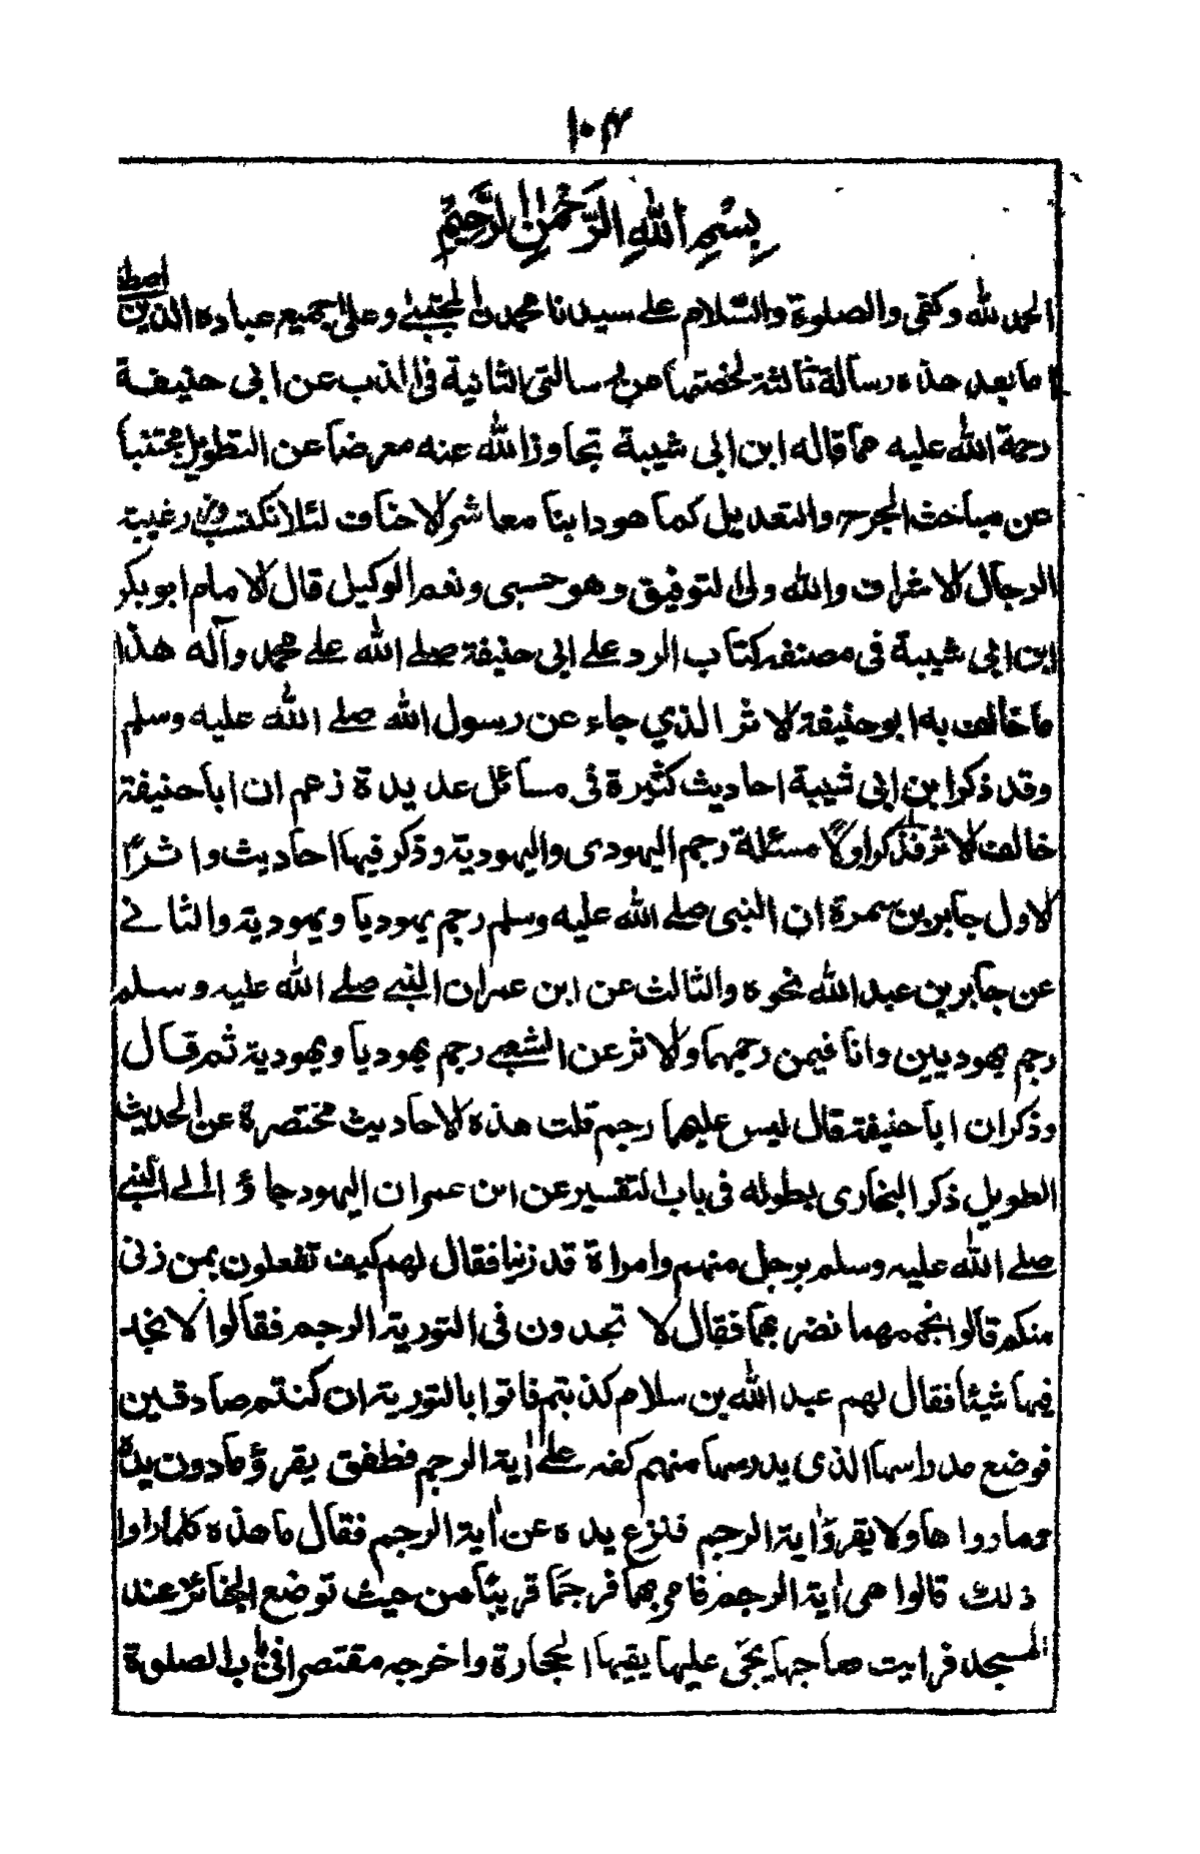 ۱۰۴
بِسْمِ اللهِ الرَّحْمٰنِ الرَّحِيْمِ
الحمد لله وكفى والصلوة والسّلام على سيدنا محمدن المجتبىٰ وعلىٰ جميع عباده الذين اصطفے
اما بعد هذه رسالة ثالثة لخصتها من رسالتى الثانية فى الذب عن ابى حنيفة
رحمة الله عليه مما قاله ابن ابى شيبة تجاوز الله عنه معرضا عن التطويل مجتنبا
عن مباحث الجرح والتعديل كما هو دابنا معاشر الاحناف لئلا نكتسب وزر غيبة
الرجال الاشراف والله ولى التوفيق وهو حسبى ونعم الوكيل قال الامام ابو بكر
ابن ابى شيبة فى مصنفه كتاب الرد على ابى حنيفة صلے الله علے محمد وآله هذا
ما خالف به ابو حنيفة الاثر الذي جاء عن رسول الله صلے الله عليه وسلم
وقد ذكر ابن ابى شيبة احاديث كثيرة فى مسائل عديدة زعم ان ابا حنيفة
خالف الاثر فذكر اولا مسئلة رجم اليهودى واليهودية وذكر فيها احاديث واثرا
الاول جابر بن سمرة ان النبى صلے الله عليه وسلم رجم يهوديا ويهودية والثانے
عن جابر بن عبد الله نحوه والثالث عن ابن عمر ان النبے صلے الله عليه وسلم
رجم يهوديين وانا فيمن رجمهما والاثر عن الشعبے رجم يهوديا ويهودية ثم قال
وذكر ان ابا حنيفة قال ليس عليهما رجم قلت هذه الاحاديث مختصرة عن الحديث
الطويل ذكر البخارى بطوله فى باب التفسير عن ابن عمر ان اليهود جاؤ الى النبے
صلے الله عليه وسلم برجل منهم وامراة قد زنيا فقال لهم كيف تفعلون بمن زنى
منكم قالوا نحممهما نضربهما فقال لا تجدون فى التورية الرجم فقالوا لا نجد
فيها شيئا فقال لهم عبد الله بن سلام كذبتم فاتوا بالتورية ان كنتم صادقين
فوضع مدراسها الذى يدرسها منهم كفه علے اٰية الرجم فطفق يقرؤ مادون يده
وماوراءها ولا يقرؤ اٰية الرجم فنزع يده عن اٰية الرجم فقال ما هذه كلما راوا
ذلك قالوا هى اٰية الرجم فامر بهما فرجما قريبا من حيث توضع الجنائز عند
المسجد فرايت صاحبها يجنى عليها يقيها الحجارة واخرجه مقتصرا فى باب الصلوة